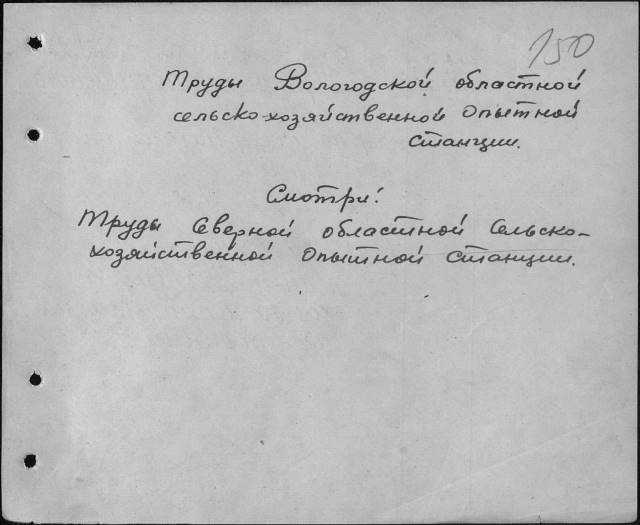 150
Труды Вологодской областной
сельско-хозяйственной Опытной
Станции.
Смотри:
Труды Северной областной Сельско-
хозяйственной Опытной Станции.